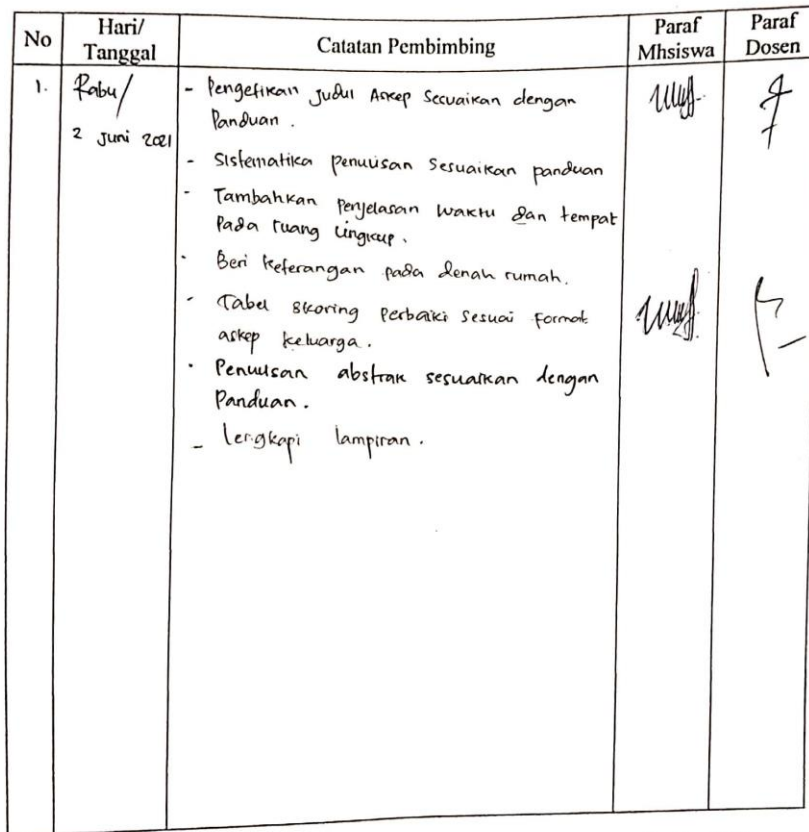 No Hari/ Tanggal Catatan Pembimbing Paraf Mhsiswa Paraf Dosen
1. Rabu/
2 Juni 2021
- Pengetikan Judul Askep Sesuaikan dengan
Panduan.
- Sistematika penulisan Sesuaikan panduan
- Tambahkan Penjelasan waktu dan tempat
Pada ruang lingkup.
- Beri keterangan pada denah rumah.
- Tabel skoring Perbaiki sesuai format
askep keluarga.
- Penulisan abstrak sesuaikan dengan
Panduan.
- lengkapi lampiran.